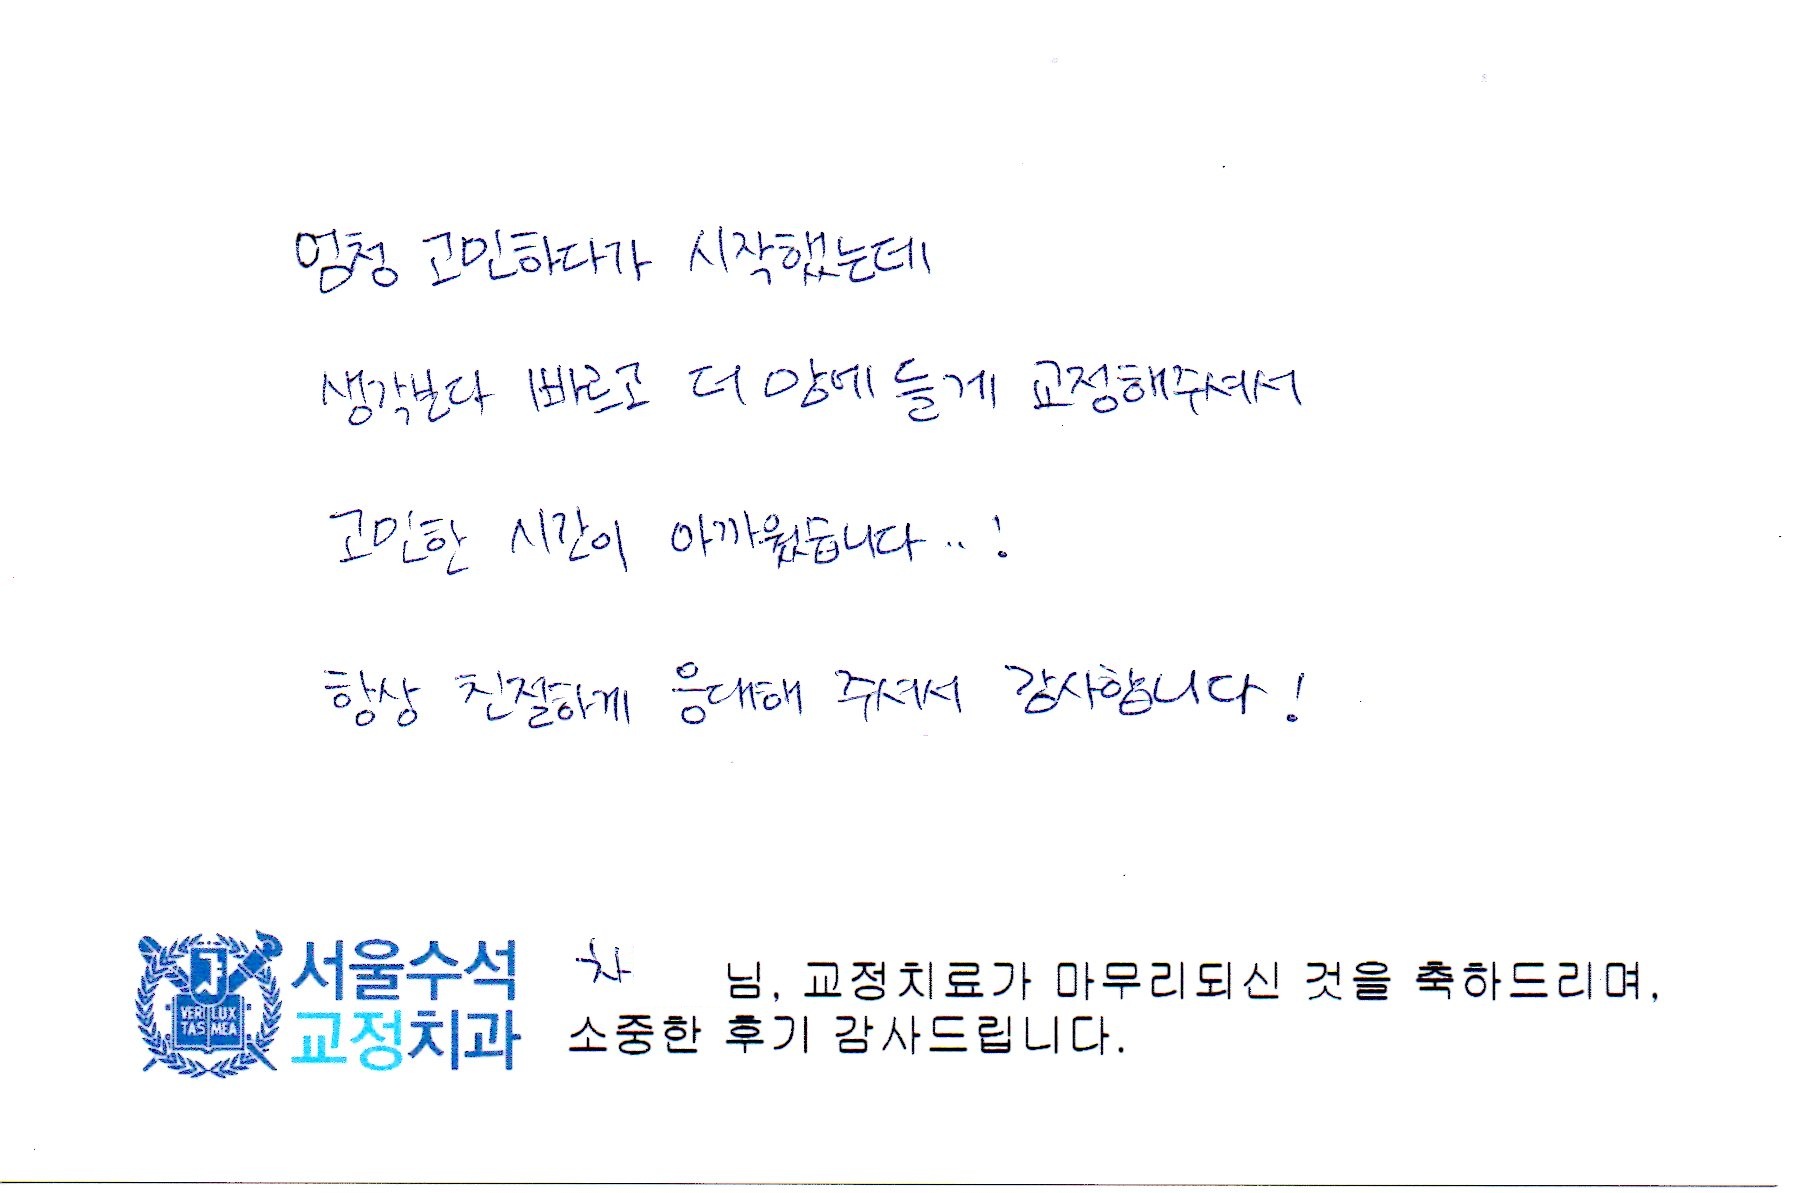 엄청 고민하다가 시작했는데
생각보다 빠르고 더 맘에 들게 교정해주셔서
고민한 시간이 아까웠습니다..!
항상 친절하게 응대해 주셔서 감사합니다!
VERI LUX
TAS MEA
서울수석
교정치과
차 님, 교정치료가 마무리되신 것을 축하드리며,
소중한 후기 감사드립니다.